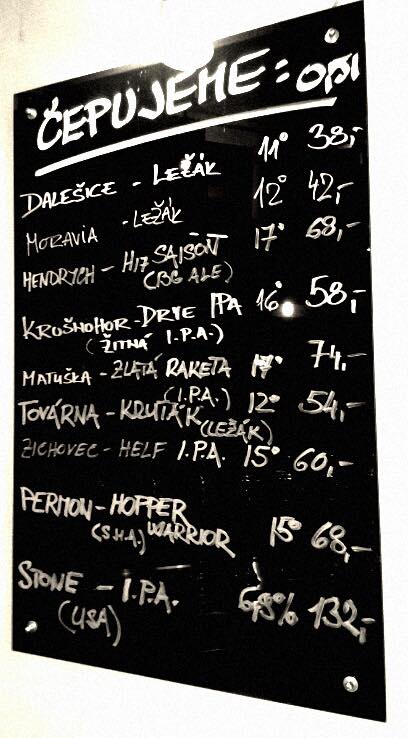 ČEPUJEME:
DALEŠICE - LEŽÁK 11° 38,-
MORAVIA - LEŽÁK 12° 42,-
HENDRYCH - H17 SAISON 17° 68,-
(BG ALE)
KRUŠNOHOR - DRTE IPA 16° 58,-
(ŽITNÁ I.P.A.)
MATUŠKA - ZLATÁ RAKETA 17° 74,-
(I.P.A.)
TOVÁRNA - KRUŤÁK 12° 54,-
(LEŽÁK)
ZICHOVEC - HELF I.P.A. 15° 60,-
PERMON - HOPPER
(S.H.A.) WARRIOR 15° 68,-
STONE - I.P.A. 132,-
(USA)